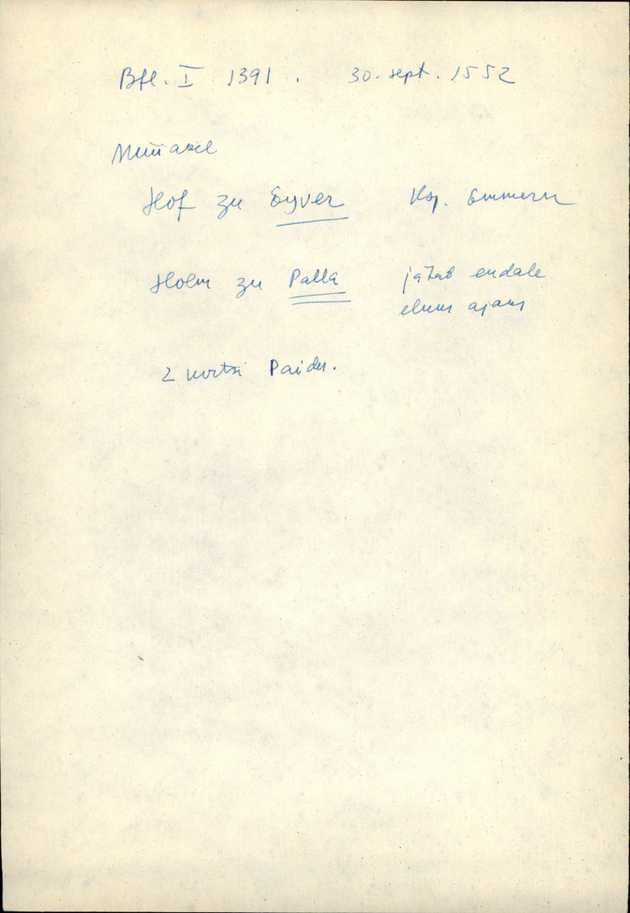 Bfl. I 1391. 30. sept. 1552
Müüakse
Hof zu Eyver Ksp. Emmern
Holm zu Palla jätab endale
eluus ajaus
2 wirtsi Paides.